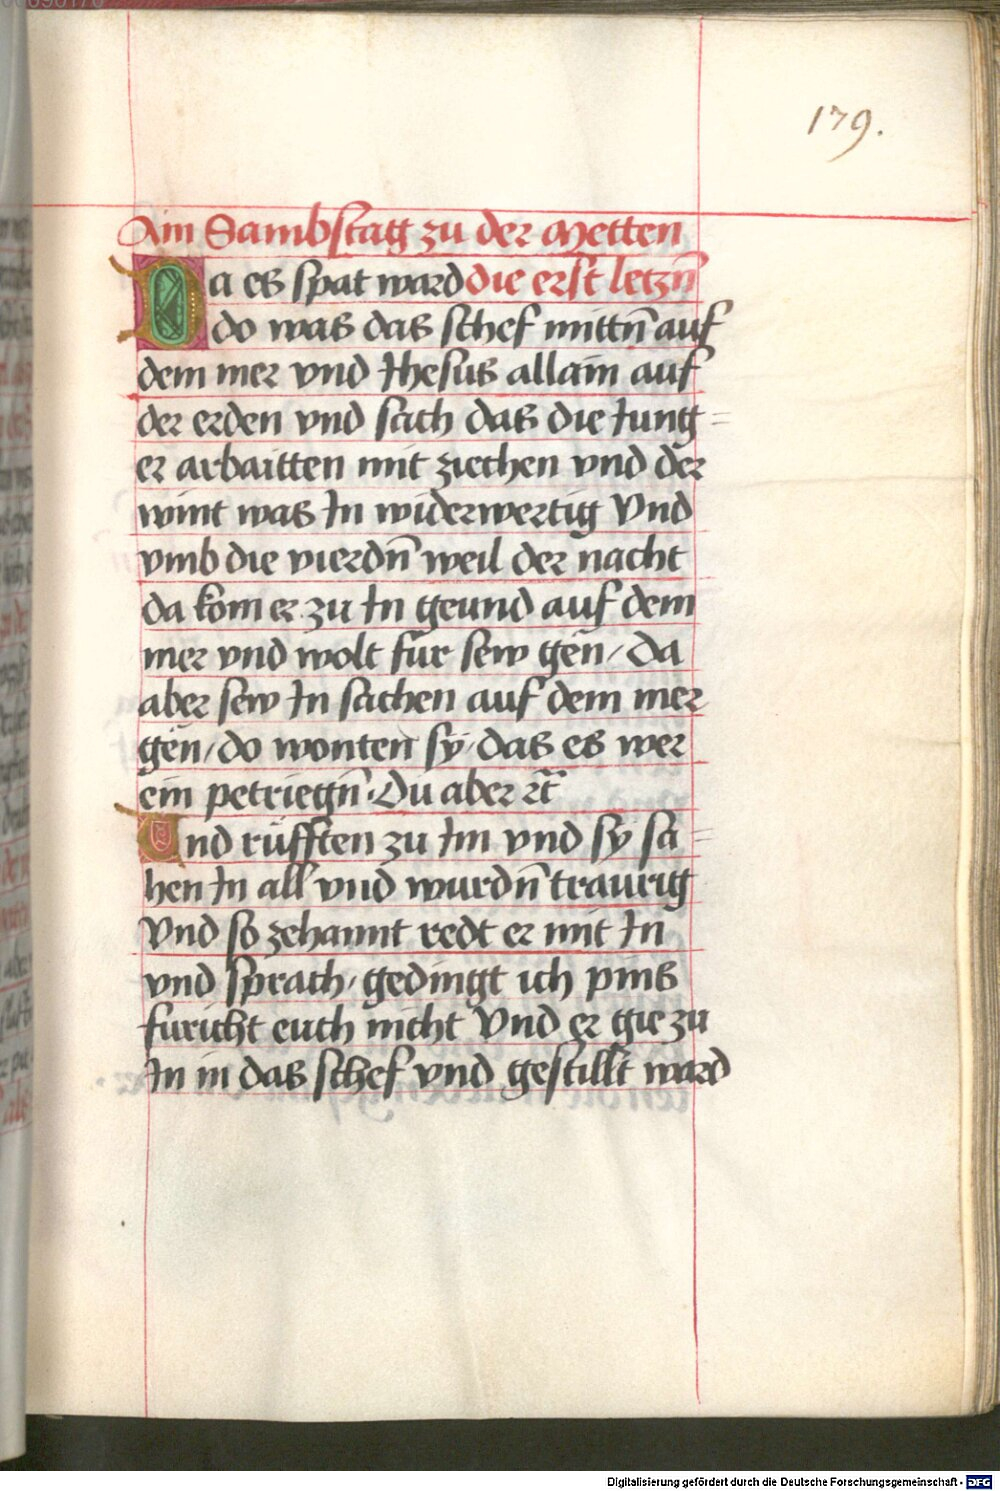 179.
Am Sambstag zu der Metten
Da es spat ward die erst letzñ
do was das schef mittñ auf
dem mer vnd Ihesus allain auf
der erden vnd sach das die Jung=
er arbaitten mit ziechen vnd der
wint was In widerwertig Vnd
vmb die vierdñ weil der nacht
da kom er zu In geund auf dem
mer vnd wolt für sew gen / Da
aber sew In sachen auf dem mer
gen / do wonten sy das es wer
ein petriegñ · Du aber ꝛc̃
Vnd rüfften zu Im vnd sy sa=
hen In all vnd wurdñ traurig
Vnd so zehannt redt er mit In
vnd sprach / gedingt ich pins
furicht euch nicht Vnd er gie zu
In in das schef vnd gestillt ward
Digitalisierung gefördert durch die Deutsche Forschungsgemeinschaft - DFG